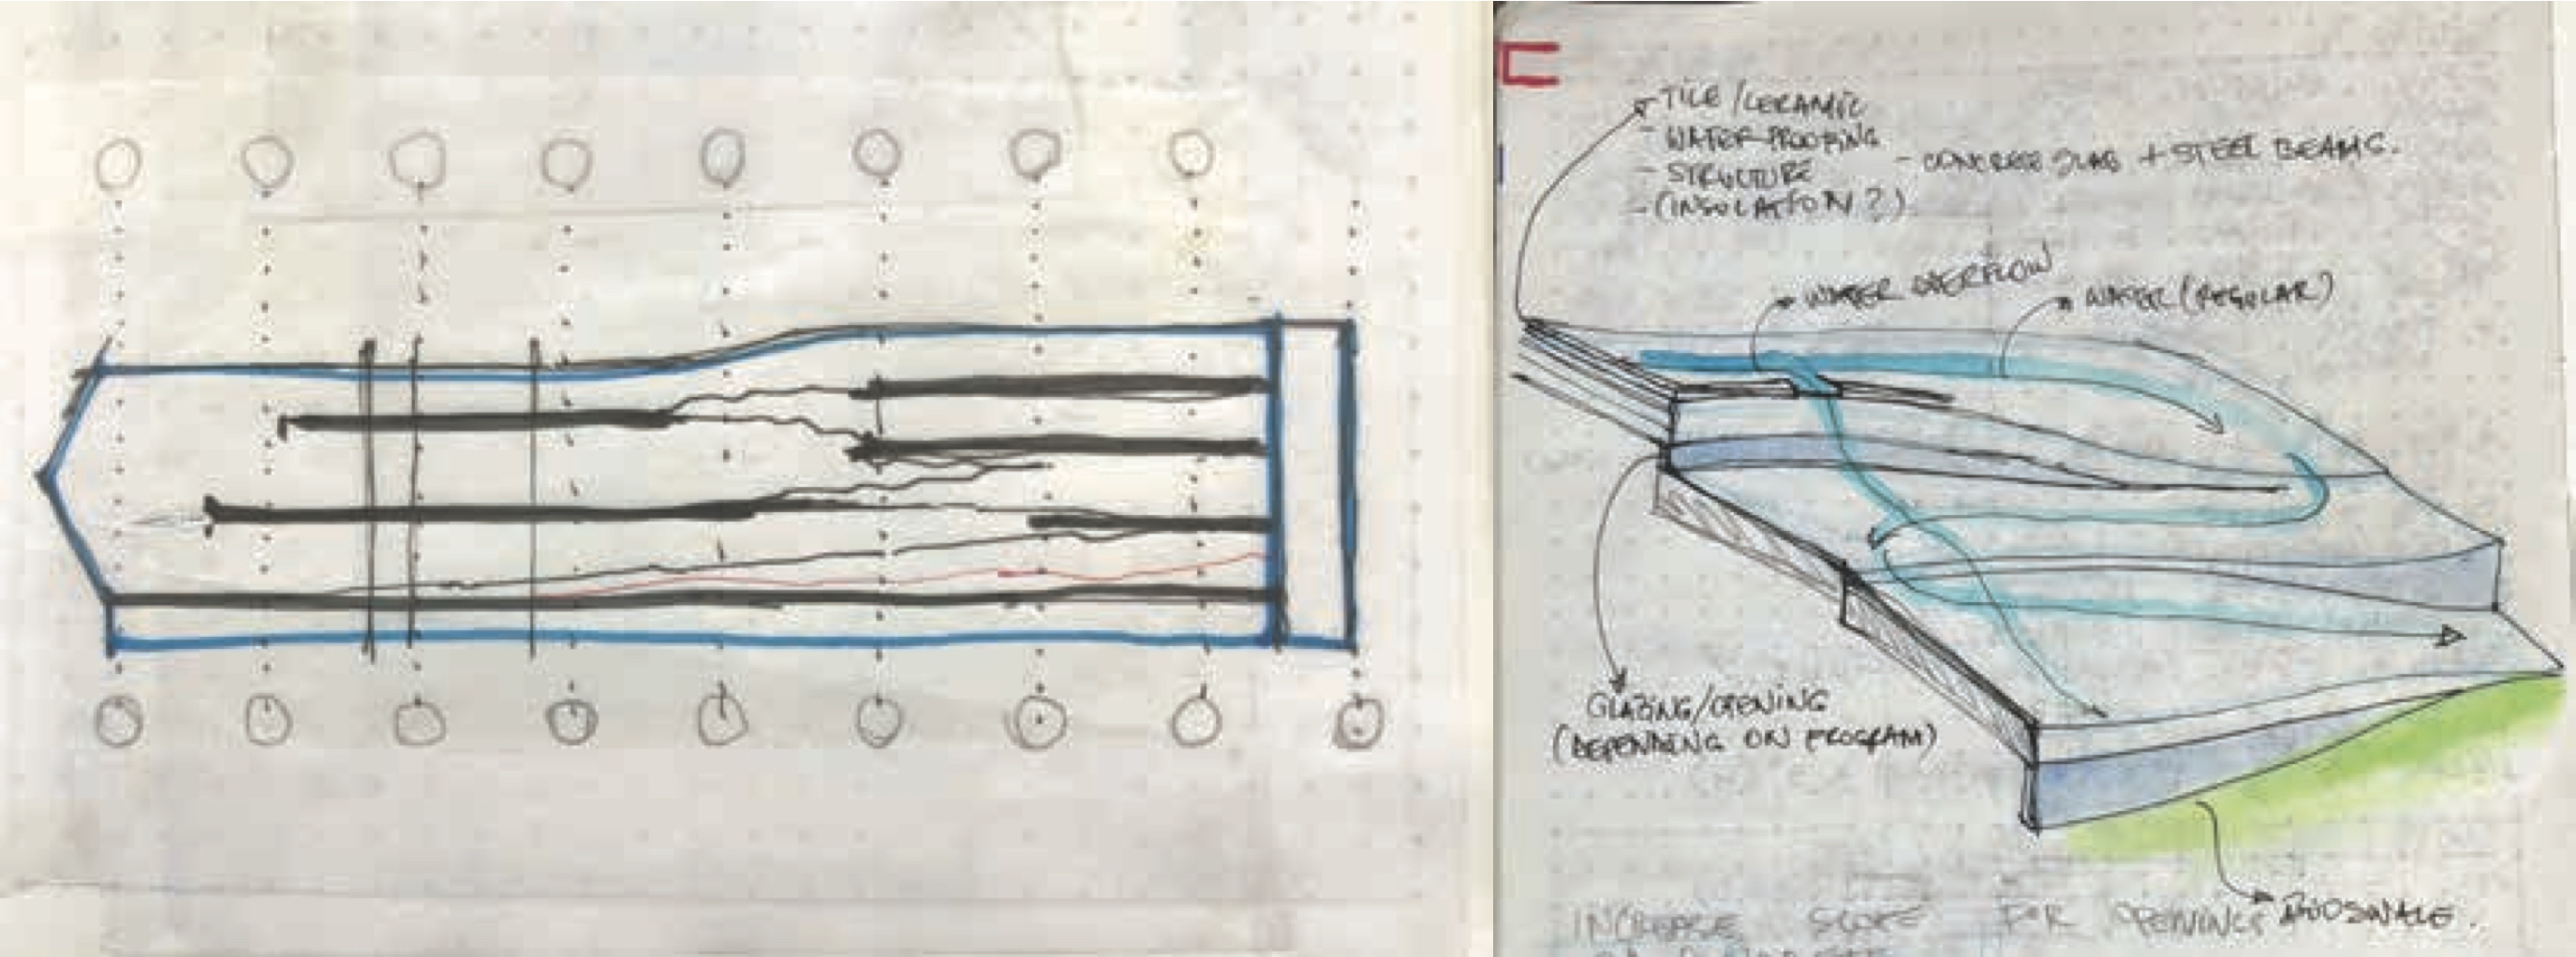 TILE/CERAMIC
- WATER PROOFING
- STRUCTURE - CONCRETE SLAB + STEEL BEAMS.
- (INSULATION?)
WATER OVERFLOW
WATER (REGULAR)
GLAZING/OPENING
(DEPENDING ON PROGRAM)
BIOSWALE.
INCREASE SLOPE FOR OPENINGS